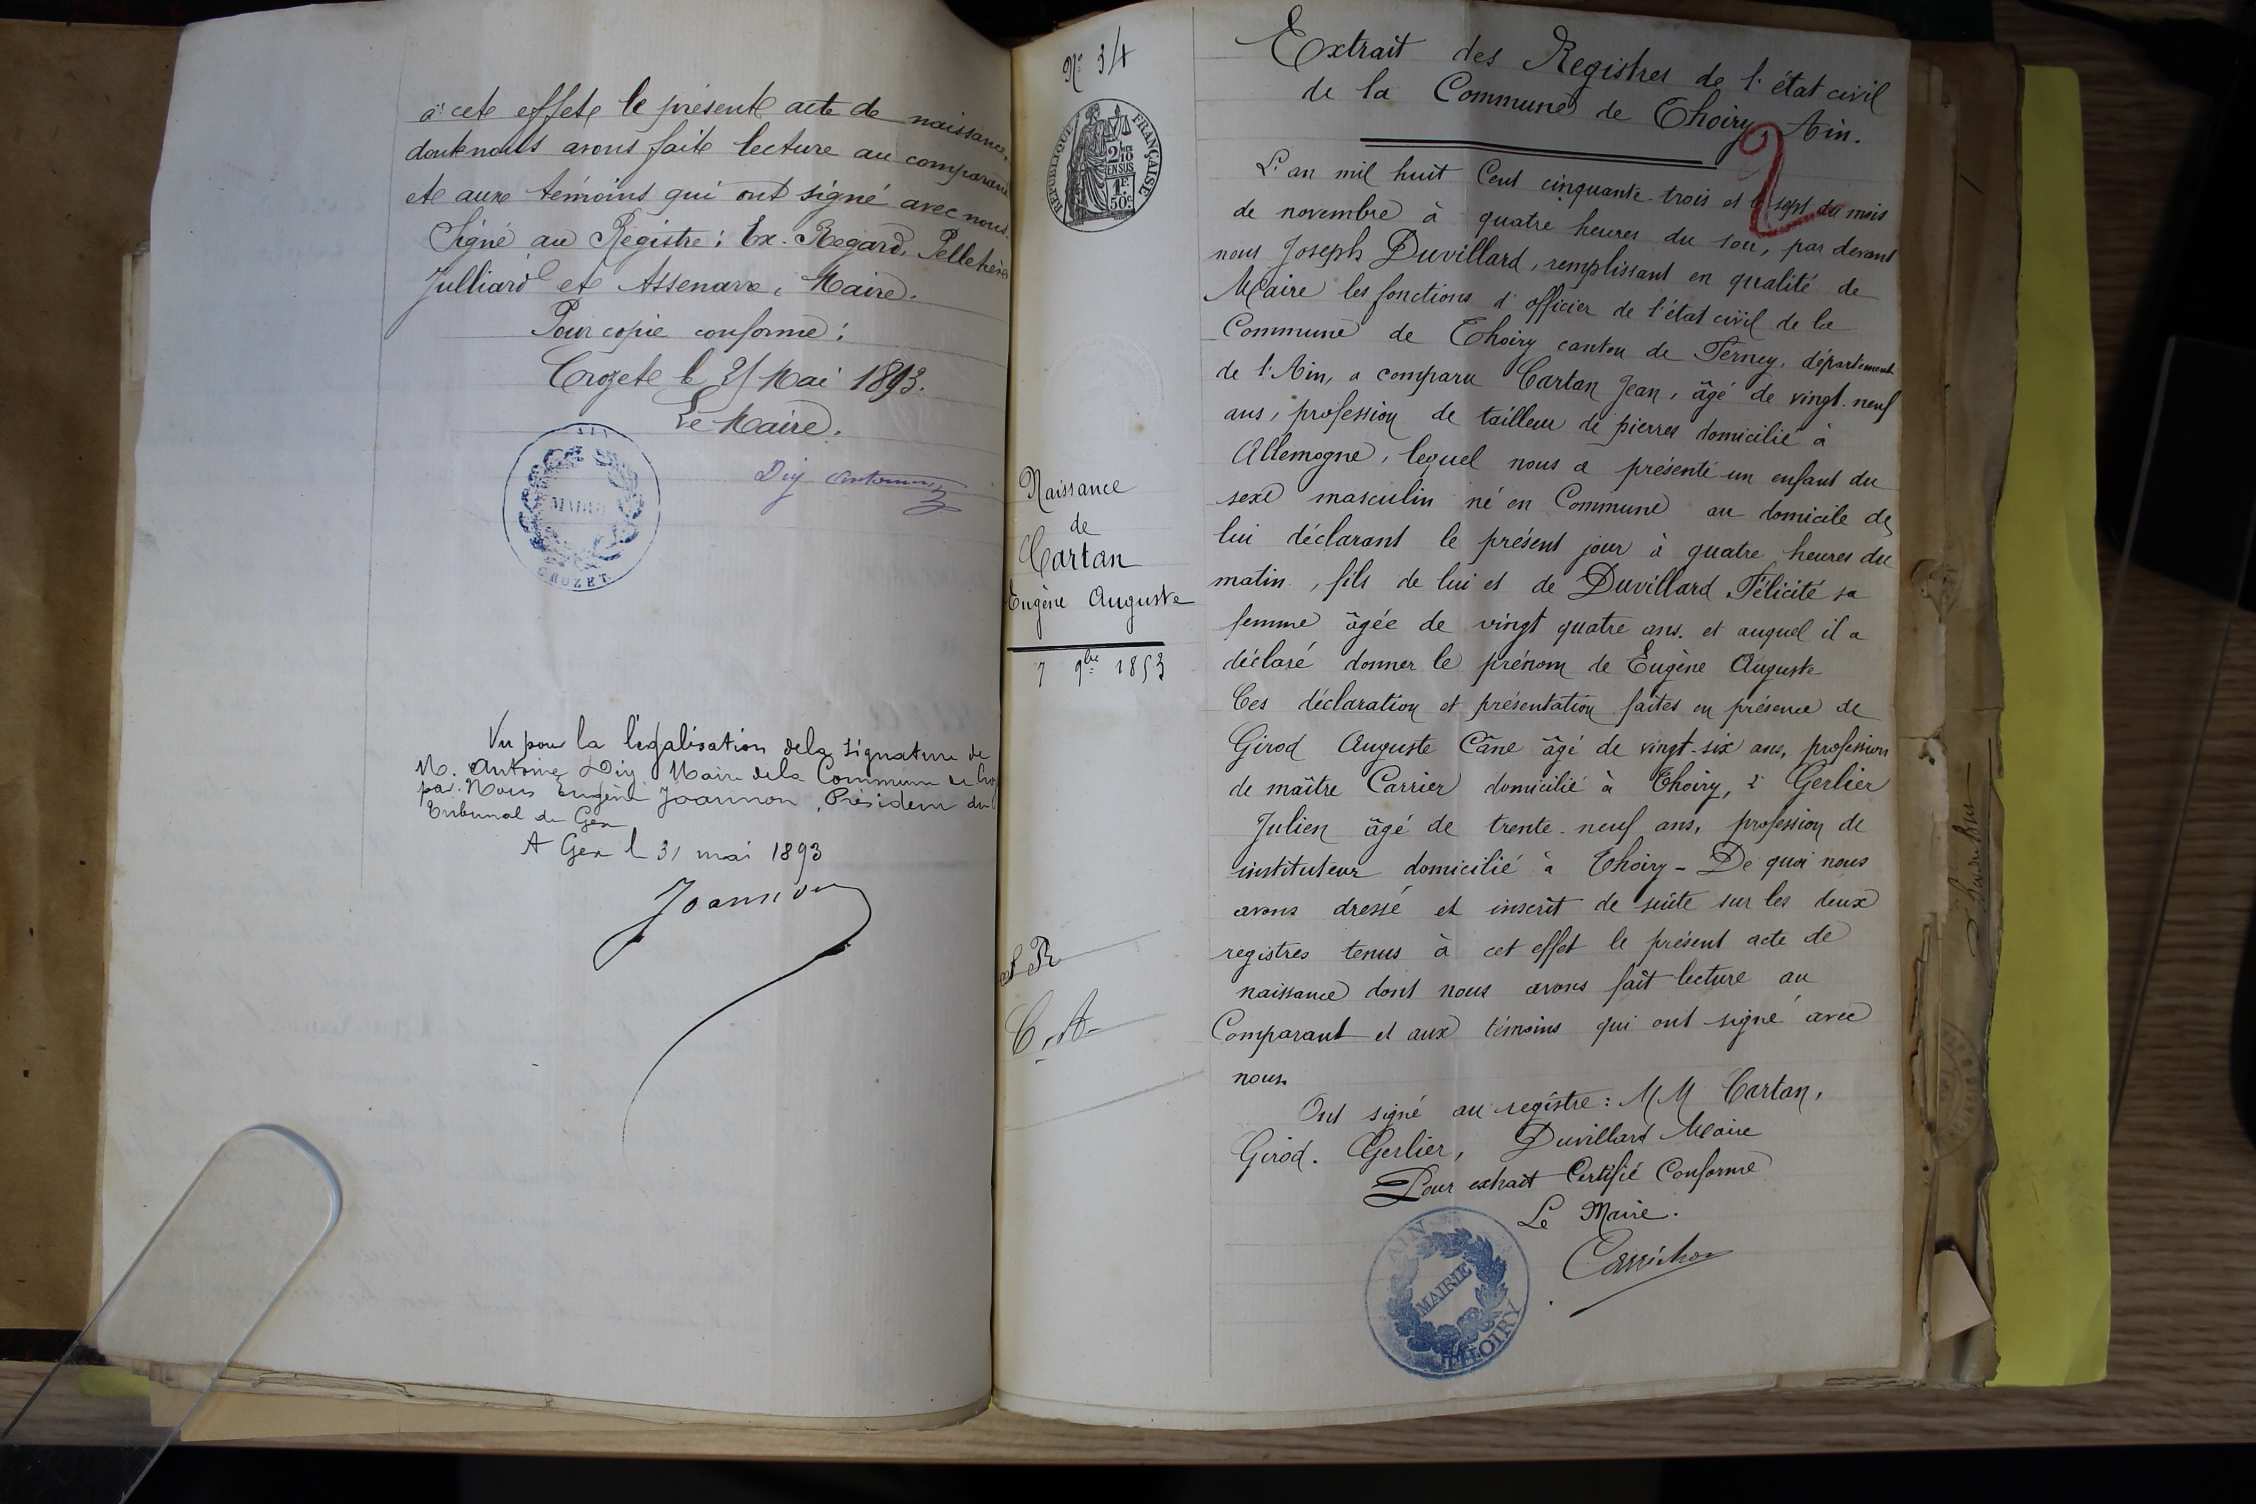 à cet effet le présent acte de naissance,
dont nous avons fait lecture au comparant
et aux témoins qui ont signé avec nous.
Signé au Registre: Ex. Regard, Pelletier
Julliard et Assenarre, Maire.
Pour copie conforme:
Crozet le 31 Mai 1893.
Le Maire.
AIN
MAIRIE
CROZET
Vu pour la légalisation de la signature de
M. Antoine Diy Maire de la Commune de Cro
par Nous Eugène Joannon, Président du
Tribunal de Gex
A Gex le 31 mai 1893
Joannon
N° 34
RÉPUBLIQUE FRANÇAISE
2/10
EN SUS
1F.
50c.
Naissance
de
Cartan
Eugène Auguste
7 9bre 1853
Extrait des Registres de l'état civil
de la Commune de Thoiry, Ain.
2
L'an mil huit Cent cinquante-trois et le sept du mois
de novembre à quatre heures du soir, par devant
nous Joseph Duvillard, remplissant en qualité de
Maire les fonctions d'officier de l'état civil de la
Commune de Thoiry canton de Ferney, département
de l'Ain, a comparu Cartan Jean, âgé de vingt-neuf
ans, profession de tailleur de pierres domicilié à
Allemogne, lequel nous a présenté un enfant du
sexe masculin né en Commune au domicile de
lui déclarant le présent jour à quatre heures du
matin, fils de lui et de Duvillard Félicité sa
femme âgée de vingt quatre ans. et auquel il a
déclaré donner le prénom de Eugène Auguste
Ces déclaration et présentation faites en présence de
Girod Auguste Câne âgé de vingt-six ans, profession
de maître Carrier domicilié à Thoiry, & Gerlier
Julien âgé de trente-neuf ans, profession de
instituteur domicilié à Thoiry - De quoi nous
avons dressé et inscrit de suite sur les deux
registres tenus à cet effet le présent acte de
naissance dont nous avons fait lecture au
Comparant et aux témoins qui ont signé avec
nous.
Ont signé au registre: MM Cartan,
Girod. Gerlier, Duvillard Maire
Pour extrait Certifié Conforme
Le Maire.
AIN
MAIRIE
THOIRY